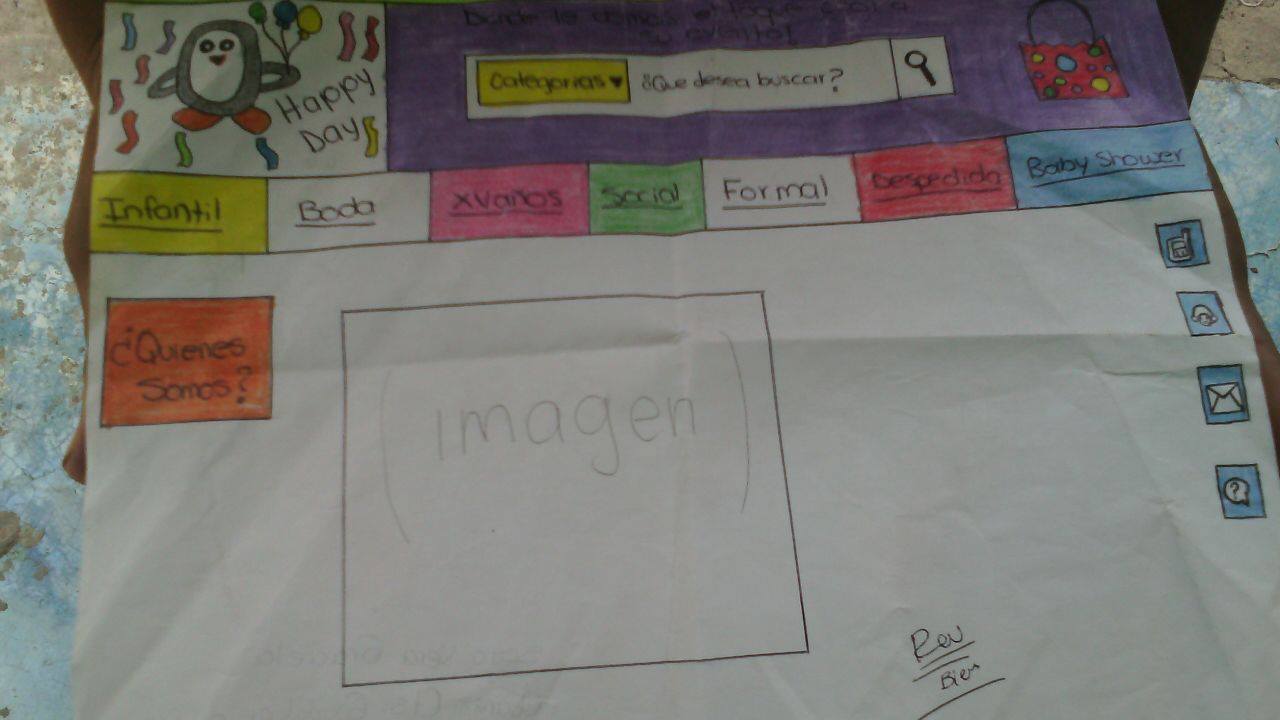 Donde le damos el toque
su evento!
Happy
Day
Categorias ¿Que desea buscar?
Infantil
Boda
XVaños
Social
Formal
Despedida
Baby Shower
¿Quienes
Somos?
(imagen)
Rev
Bien